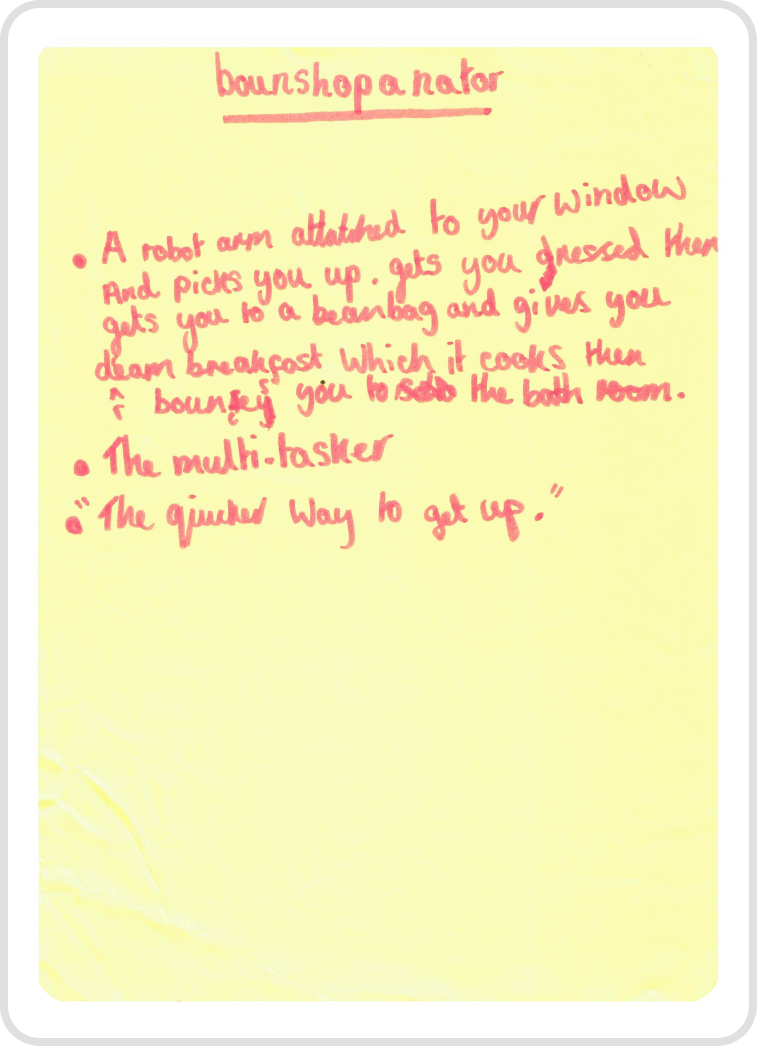 bounshopanator
• A robot arm attatched to your window
And picks you up. gets you dressed then
gets you to a beanbag and gives you
deam breakfast which it cooks then
^r bounses you to the bath room.
• The multi-tasker
• "The quicker way to get up."